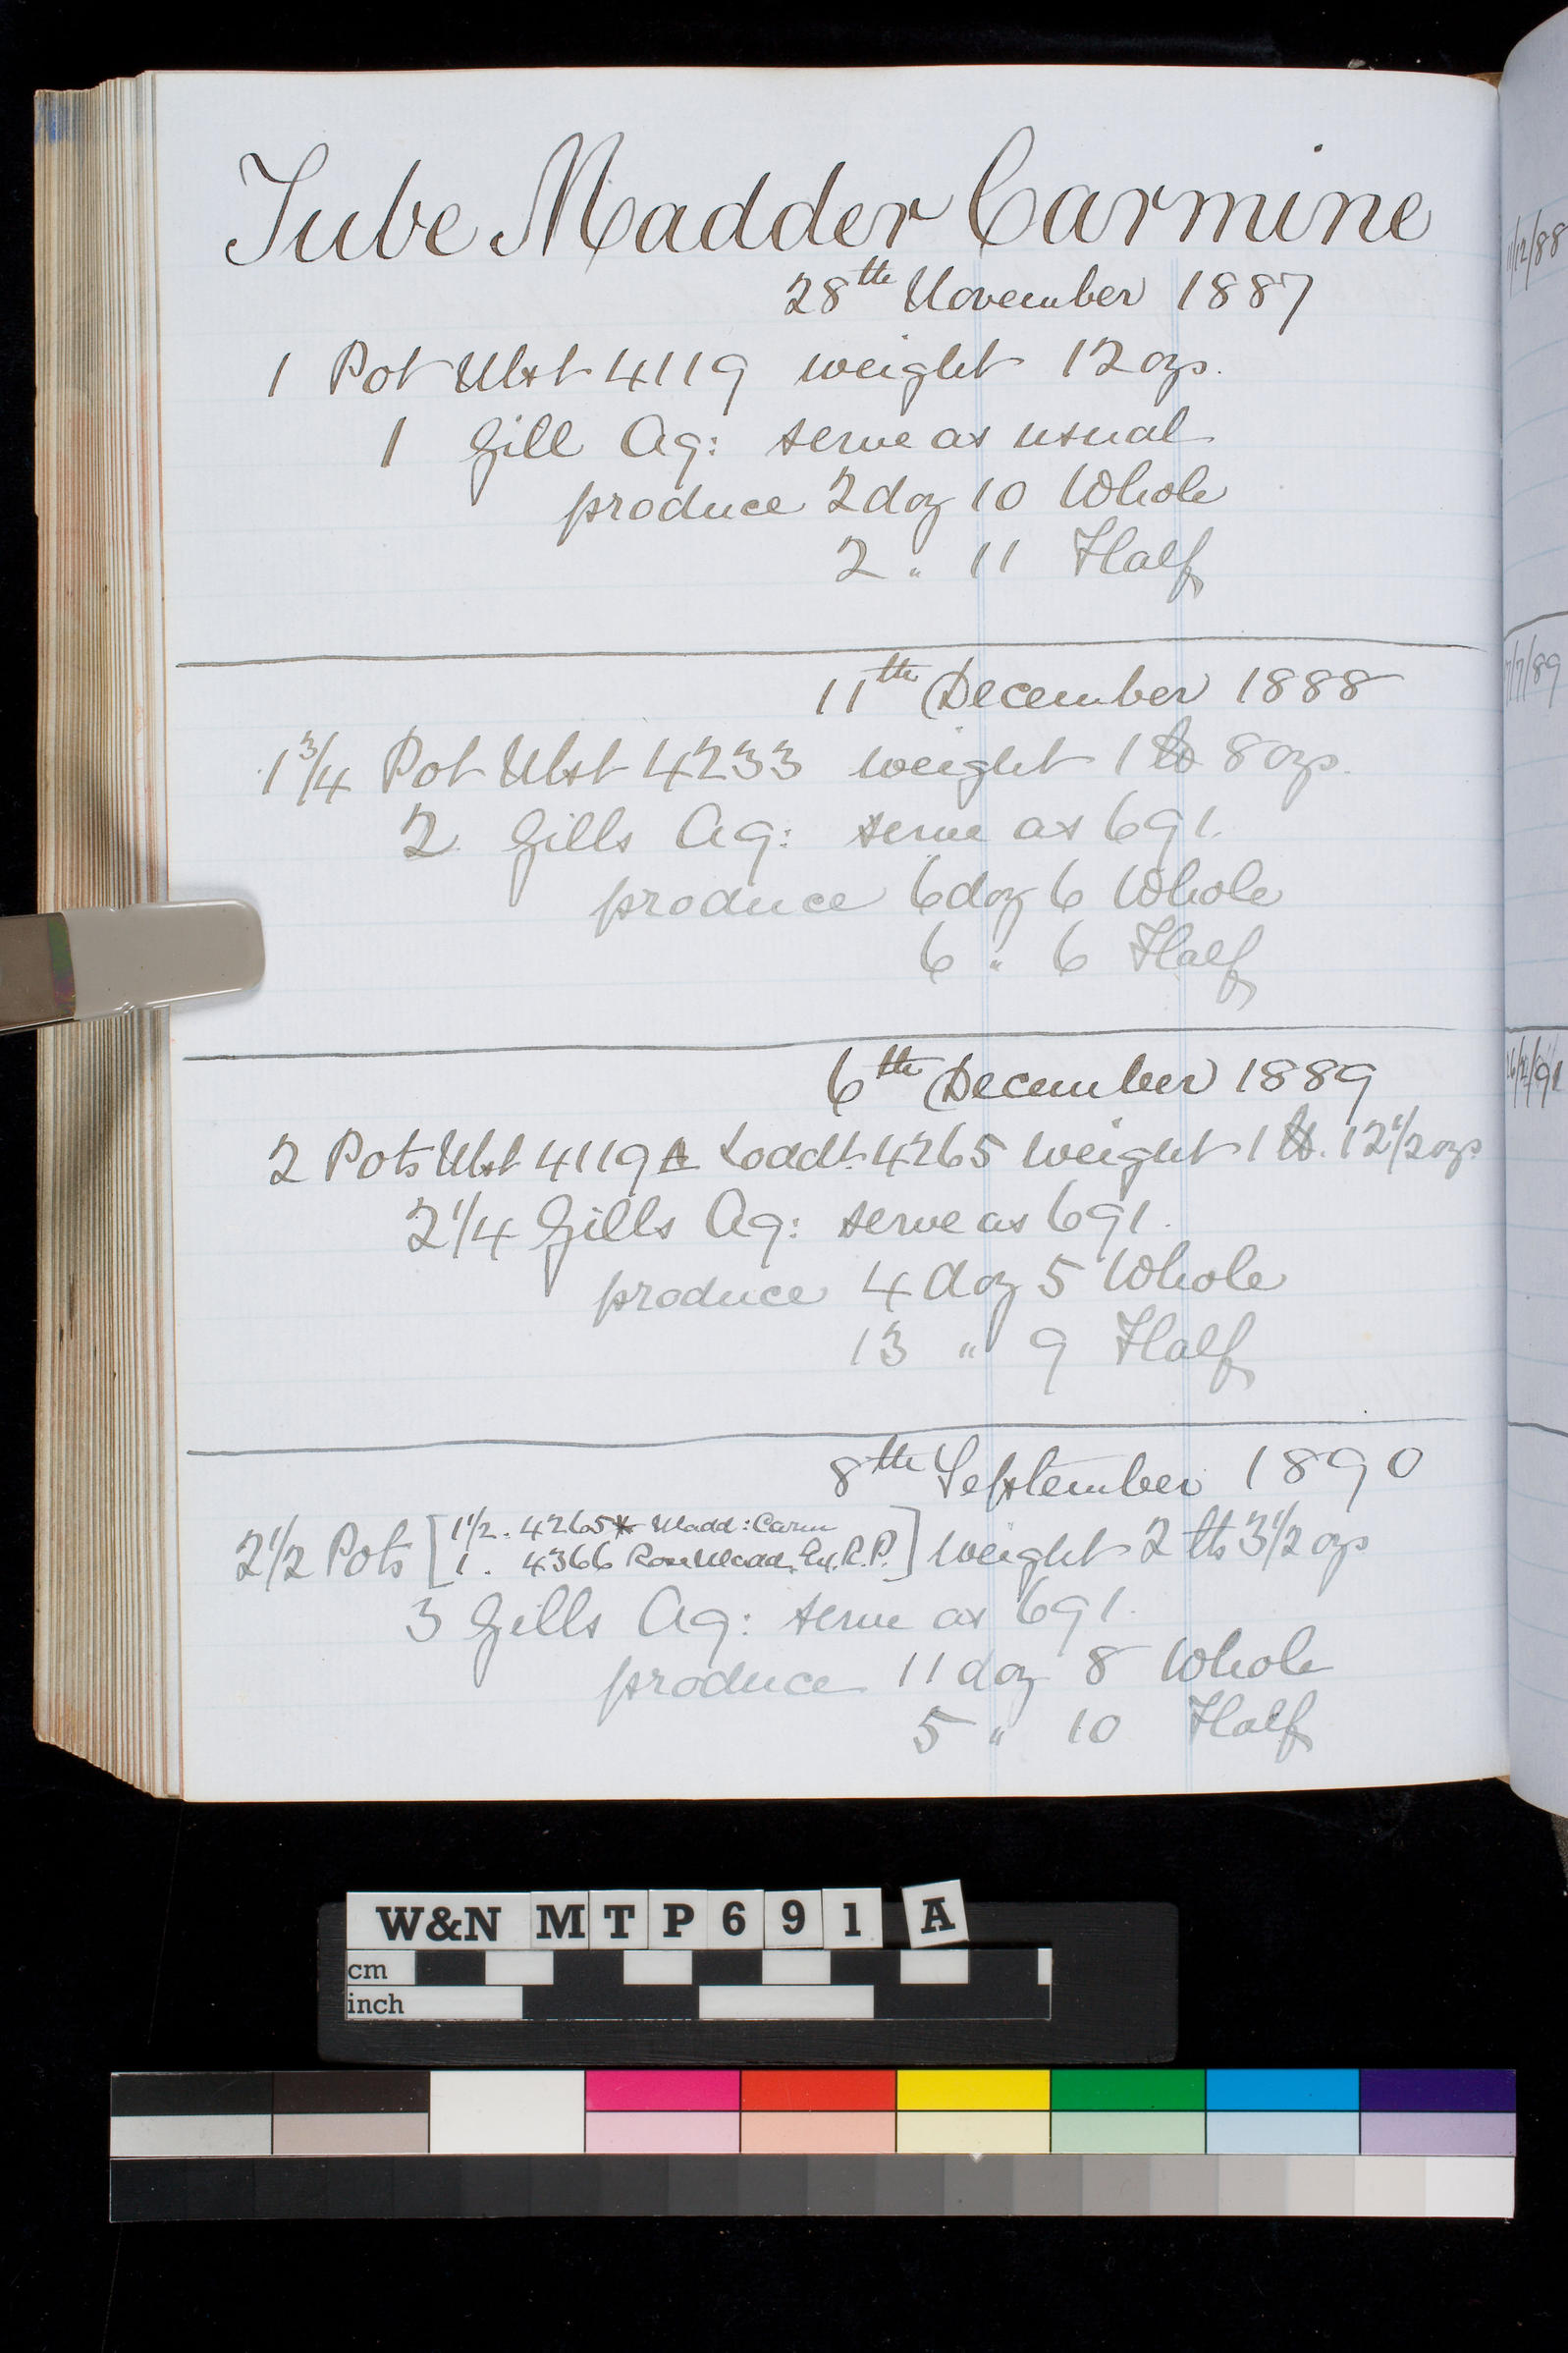 Tube Madder Carmine
28th November 1887
1 Pot Ulst 4119 weight 12 ozs.
1 Gill Aq: serve as usual
produce 2 doz 10 Whole
2 " 11 Half
11th December 1888
1 3/4 Pot Ulst 4233 weight 1 lb 8 ozs.
2 Gills Aq: serve as 691.
produce 6 doz 6 Whole
6 " 6 Half
6th December 1889
2 Pots Ulst 4119 & 4265 weight 1 lb. 12 1/2 ozs
2 1/4 Gills Aq: serve as 691.
produce 4 doz 5 Whole
13 " 9 Half
8th September 1890
2 1/2 Pots [1 1/2. 4265* Madd: Carm
1. 4366 Rose Madd. Ex. R.P.] weight 2 lbs 3 1/2 ozs
3 Gills Aq: serve as 691.
produce 11 doz 8 Whole
5 " 10 Half
11/12/88
7/7/89
/91
W&N MTP691A
cm
inch